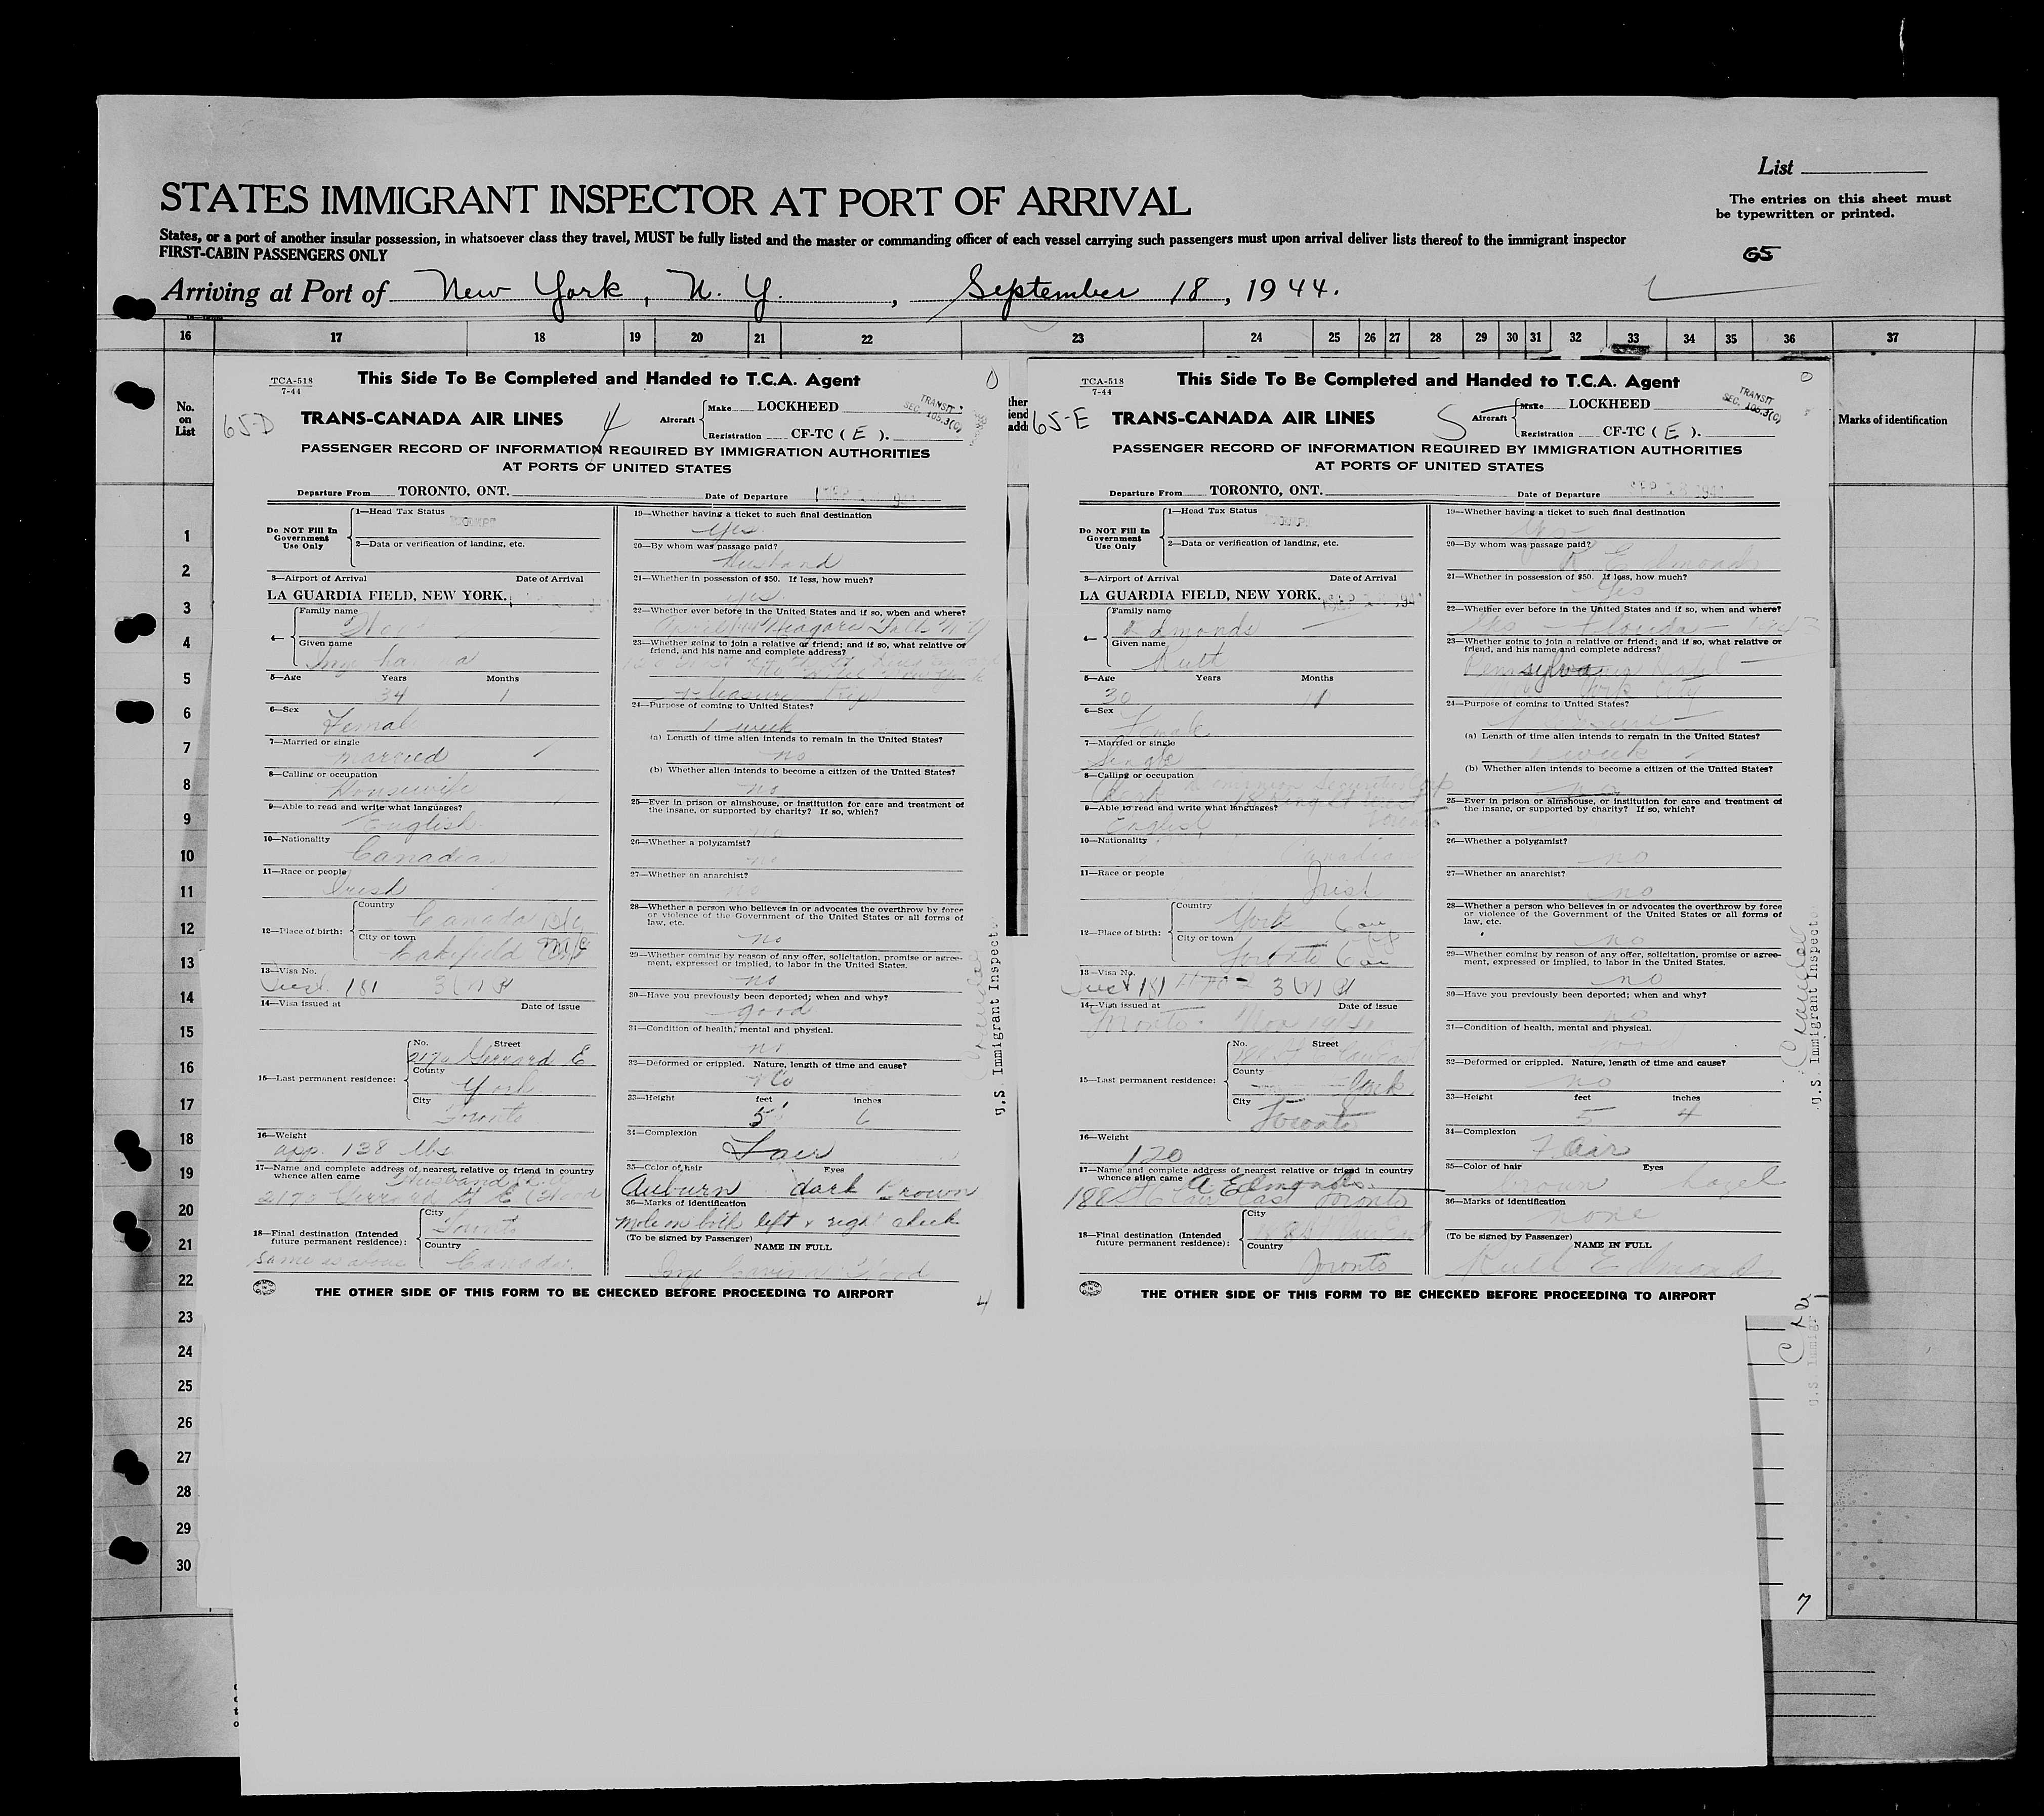 List
STATES IMMIGRANT INSPECTOR AT PORT OF ARRIVAL
The entries on this sheet must
be typewritten or printed.
States, or a port of another insular possession, in whatsoever class they travel, MUST be fully listed and the master or commanding officer of each vessel carrying such passengers must upon arrival deliver lists thereof to the immigrant inspector
FIRST-CABIN PASSENGERS ONLY
65
Arriving at Port of New York, N. Y., September 18, 1944.
16 17 18 19 20 21 22 23 24 25 26 27 28 29 30 31 32 33 34 35 36 37
No.
on
List
Marks of identification
1
2
3
4
5
6
7
8
9
10
11
12
13
14
15
16
17
18
19
20
21
22
23
24
25
26
27
28
29
30
TCA-518
7-44
This Side To Be Completed and Handed to T.C.A. Agent
65-D
TRANS-CANADA AIR LINES
4
Aircraft
Make LOCKHEED
Registration CF-TC ( E ).
TRANSIT
SEC. 105.3(C)
PASSENGER RECORD OF INFORMATION REQUIRED BY IMMIGRATION AUTHORITIES
AT PORTS OF UNITED STATES
Departure From TORONTO, ONT.
Date of Departure
Do NOT Fill In
Government
Use Only
1—Head Tax Status
2—Data or verification of landing, etc.
3—Airport of Arrival Date of Arrival
LA GUARDIA FIELD, NEW YORK.
4—
Family name
Given name
5—Age Years Months
34 1
6—Sex
Female
7—Married or single
married
8—Calling or occupation
Housewife
9—Able to read and write what languages?
English
10—Nationality
Canadian
11—Race or people
Irish
12—Place of birth:
Country
Canada
City or town
Lakefield
13—Visa No.
181 3
14—Visa issued at Date of issue
15—Last permanent residence:
No. Street
217a Gerrard E.
County
York
City
Toronto
16—Weight
app. 138 lbs
17—Name and complete address of nearest relative or friend in country
whence alien came Husband
217a Gerrard St E
18—Final destination (Intended
future permanent residence):
same as above
City
Toronto
Country
Canada
19—Whether having a ticket to such final destination
Yes
20—By whom was passage paid?
Husband
21—Whether in possession of $50. If less, how much?
yes
22—Whether ever before in the United States and if so, when and where?
Niagara Falls N Y
23—Whether going to join a relative or friend; and if so, what relative or
friend, and his name and complete address?
Pleasure Trip
24—Purpose of coming to United States?
1 week
(a) Length of time alien intends to remain in the United States?
no
(b) Whether alien intends to become a citizen of the United States?
no
25—Ever in prison or almshouse, or institution for care and treatment of
the insane, or supported by charity? If so, which?
no
26—Whether a polygamist?
no
27—Whether an anarchist?
no
28—Whether a person who believes in or advocates the overthrow by force
or violence of the Government of the United States or all forms of
law, etc.
no
29—Whether coming by reason of any offer, solicitation, promise or agree-
ment, expressed or implied, to labor in the United States.
no
30—Have you previously been deported; when and why?
good
31—Condition of health, mental and physical.
no
32—Deformed or crippled. Nature, length of time and cause?
no
33—Height feet inches
5' 6
34—Complexion
Fair
35—Color of hair Eyes
Auburn dark Brown
36—Marks of identification
Mole on both left & right cheek
(To be signed by Passenger)
NAME IN FULL
THE OTHER SIDE OF THIS FORM TO BE CHECKED BEFORE PROCEEDING TO AIRPORT
4
U.S. Immigrant Inspector
TCA-518
7-44
This Side To Be Completed and Handed to T.C.A. Agent
65-E
TRANS-CANADA AIR LINES
5
Aircraft
Make LOCKHEED
Registration CF-TC ( E ).
TRANSIT
SEC. 105.3(C)
PASSENGER RECORD OF INFORMATION REQUIRED BY IMMIGRATION AUTHORITIES
AT PORTS OF UNITED STATES
Departure From TORONTO, ONT.
Date of Departure SEP 18 194
Do NOT Fill In
Government
Use Only
1—Head Tax Status
2—Data or verification of landing, etc.
3—Airport of Arrival Date of Arrival
LA GUARDIA FIELD, NEW YORK.
4—
Family name
Edmonds
Given name
Ruth
5—Age Years Months
30 11
6—Sex
Female
7—Married or single
Single
8—Calling or occupation
Clerk
9—Able to read and write what languages?
English
10—Nationality
Canadia
11—Race or people
Irish
12—Place of birth:
Country
York Can
City or town
Toronto Can
13—Visa No.
181 3
14—Visa issued at Date of issue
Toronto
15—Last permanent residence:
No. Street
County
York
City
Toronto
16—Weight
120
17—Name and complete address of nearest relative or friend in country
whence alien came A. Edmonds
188 St Clair East Toronto
18—Final destination (Intended
future permanent residence):
City
Country
Toronto
19—Whether having a ticket to such final destination
Yes
20—By whom was passage paid?
R Edmonds
21—Whether in possession of $50. If less, how much?
Yes
22—Whether ever before in the United States and if so, when and where?
Yes - Florida -
23—Whether going to join a relative or friend; and if so, what relative or
friend, and his name and complete address?
Pennsylvania Hotel
York City
24—Purpose of coming to United States?
Pleasure
(a) Length of time alien intends to remain in the United States?
1 week
(b) Whether alien intends to become a citizen of the United States?
25—Ever in prison or almshouse, or institution for care and treatment of
the insane, or supported by charity? If so, which?
26—Whether a polygamist?
no
27—Whether an anarchist?
no
28—Whether a person who believes in or advocates the overthrow by force
or violence of the Government of the United States or all forms of
law, etc.
no
29—Whether coming by reason of any offer, solicitation, promise or agree-
ment, expressed or implied, to labor in the United States.
no
30—Have you previously been deported; when and why?
no
31—Condition of health, mental and physical.
32—Deformed or crippled. Nature, length of time and cause?
no
33—Height feet inches
5 4
34—Complexion
Fair
35—Color of hair Eyes
brown hazel
36—Marks of identification
none
(To be signed by Passenger)
NAME IN FULL
Ruth Edmonds
THE OTHER SIDE OF THIS FORM TO BE CHECKED BEFORE PROCEEDING TO AIRPORT
U.S. Immigrant Inspector
7